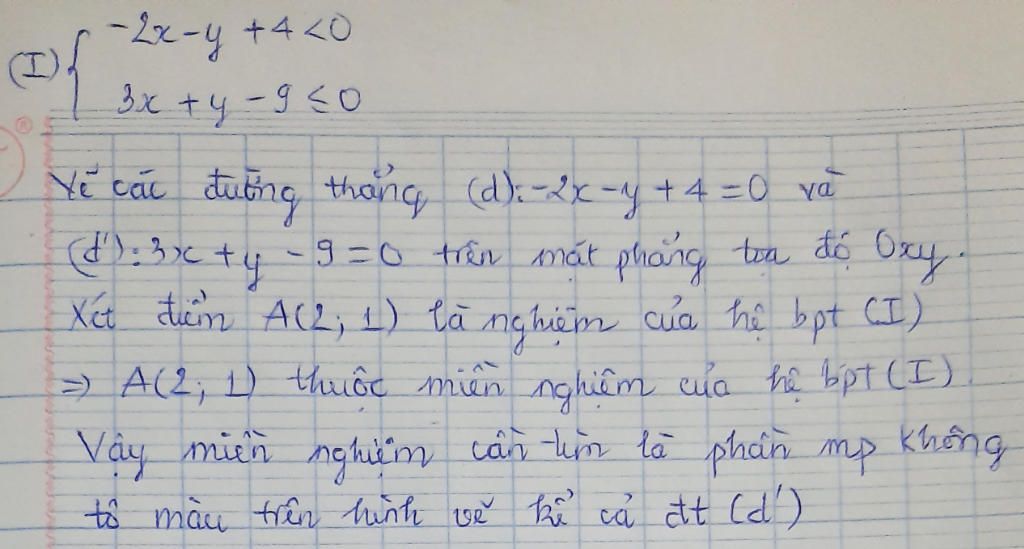 (I) { -2x - y + 4 < 0
3x + y - 9 ≤ 0
Vẽ các đường thẳng (d): -2x - y + 4 = 0 và
(d'): 3x + y - 9 = 0 trên mặt phẳng tọa độ Oxy.
Xét điểm A(2; 1) là nghiệm của hệ bpt (I)
=> A(2; 1) thuộc miền nghiệm của hệ bpt (I)
Vậy miền nghiệm cần tìm là phần mp không
tô màu trên hình vẽ kể cả đt (d')